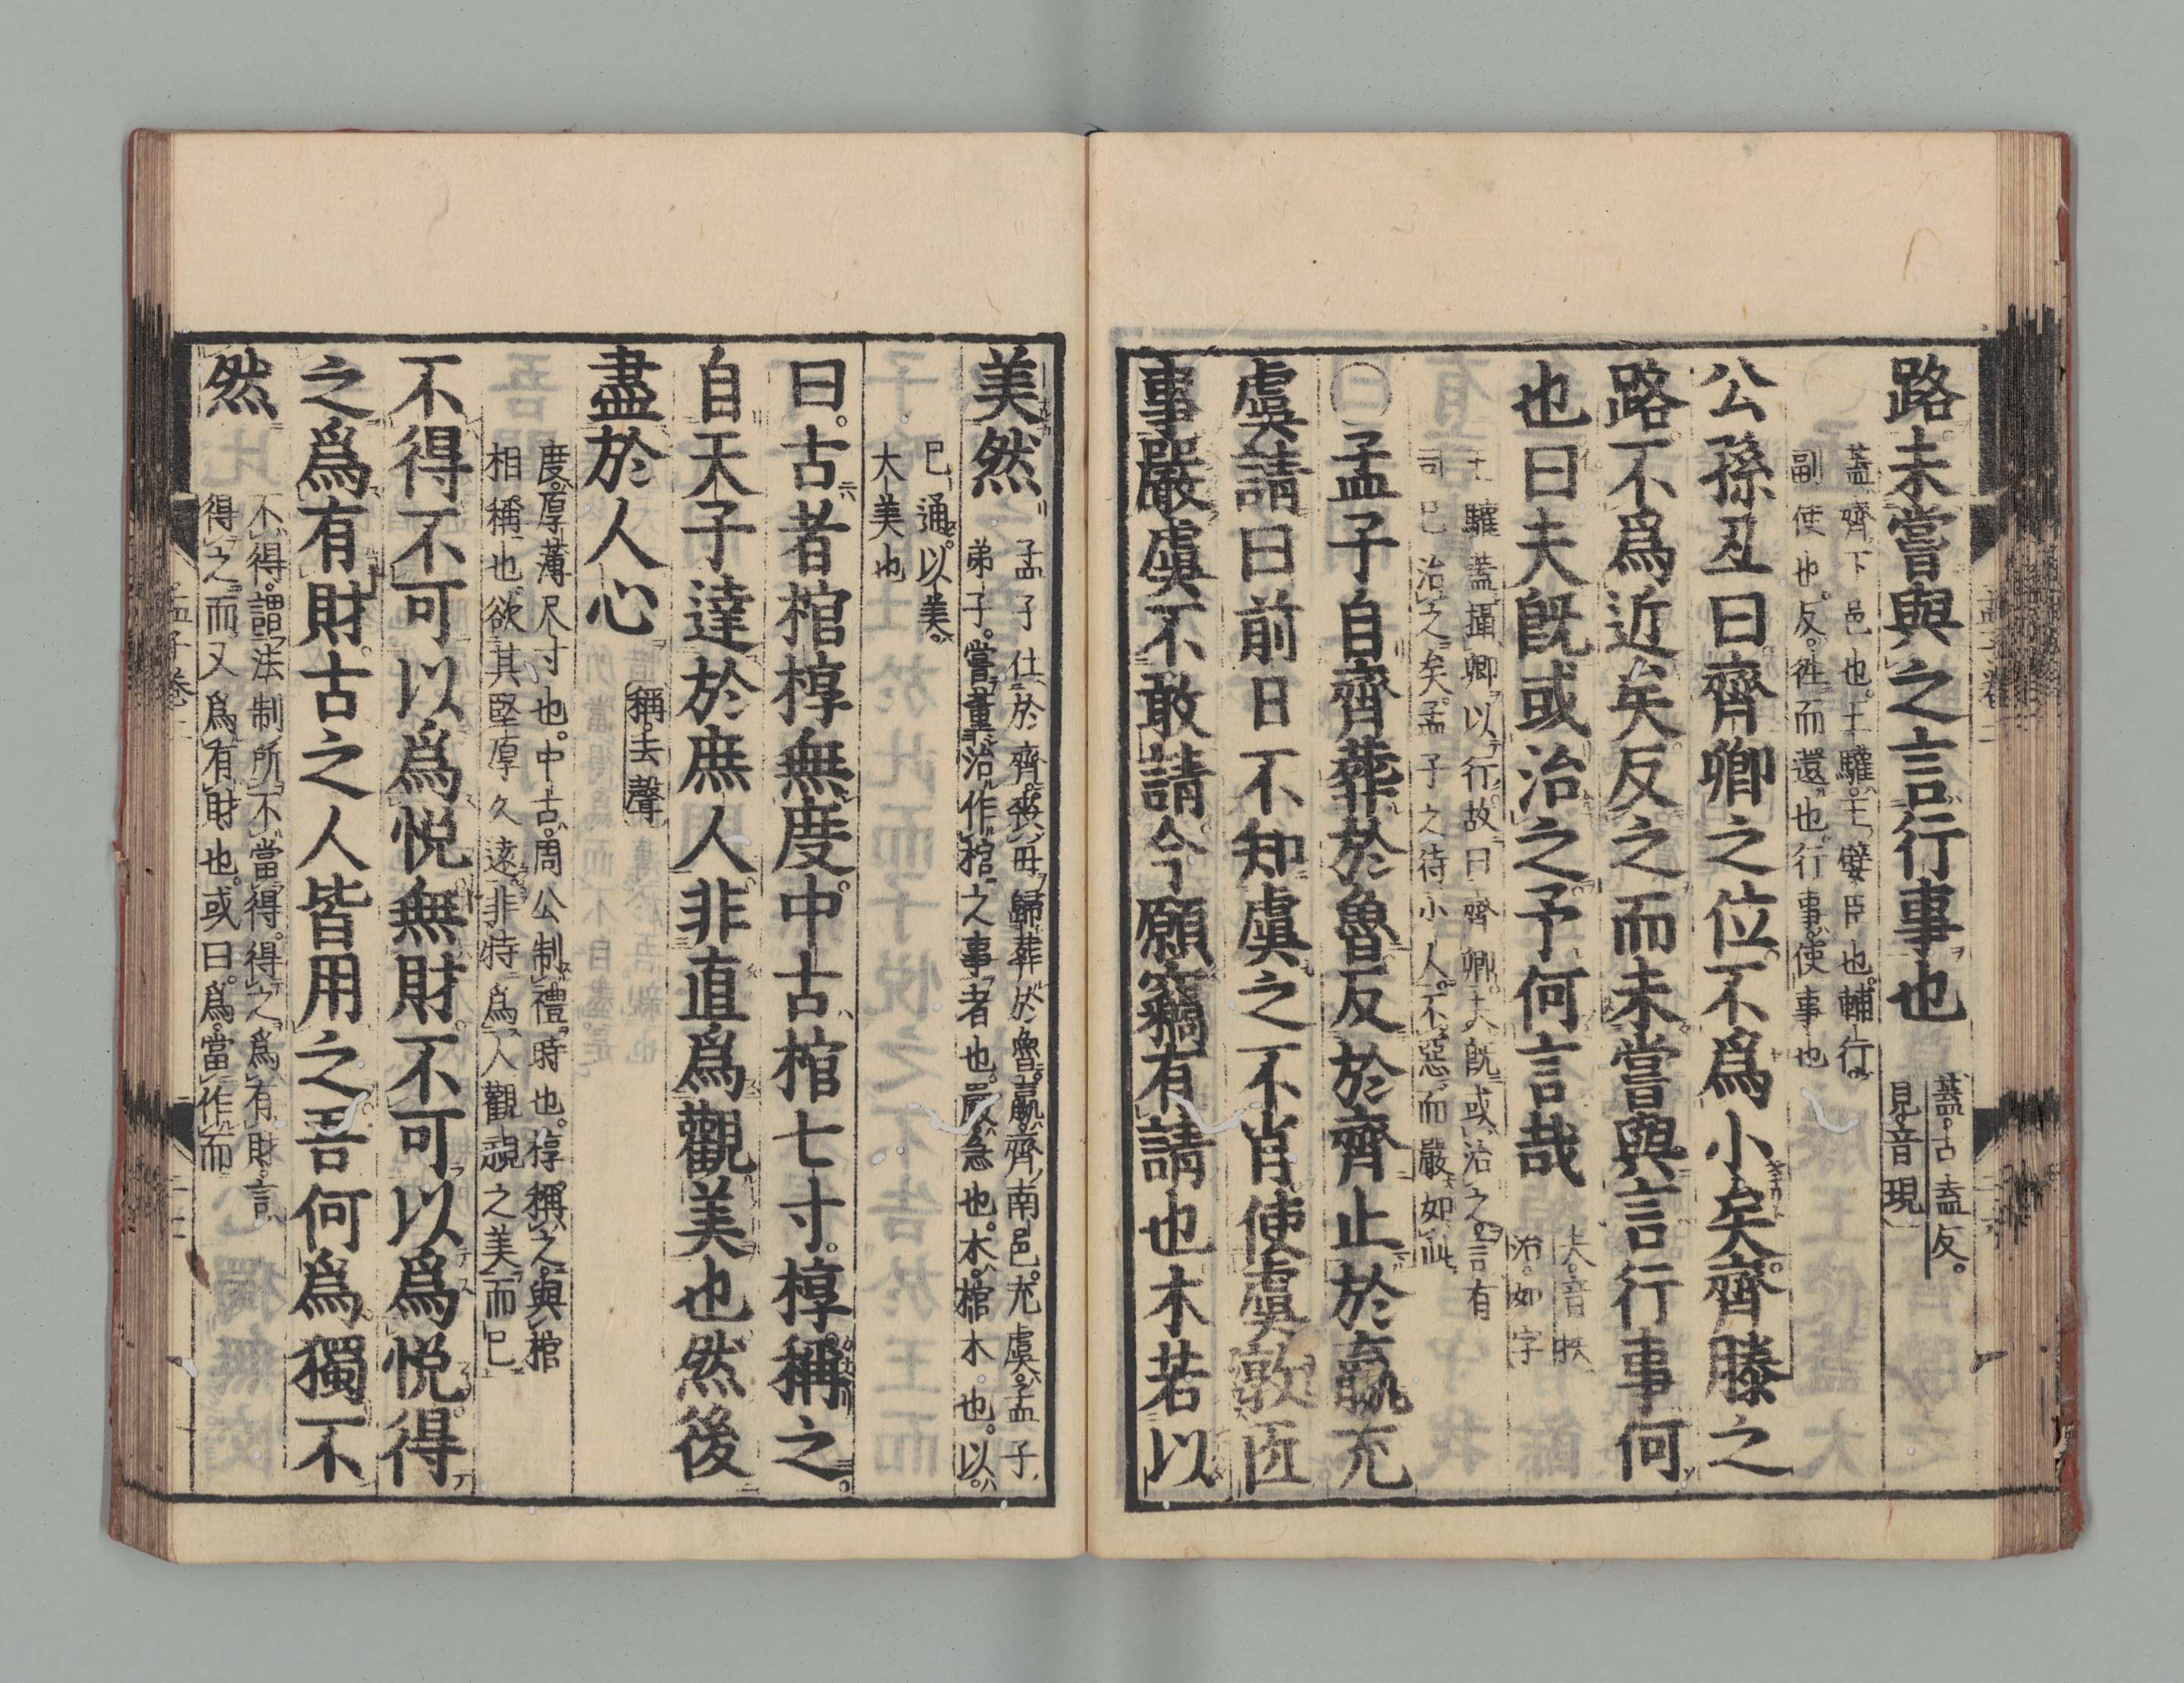 路未嘗與之言行事也
蓋古盍反。
見音現
蓋齊下邑也。王驩。王嬖臣也。輔行。
副使也。反。徃而還也。行事。使事也
公孫丑曰齊卿之位。不爲小矣。齊滕之
路不爲近矣。反之而未嘗與言行事何
也曰夫旣或治之予何言哉
夫音扶
治如字
王驩蓋攝卿以行故曰齊卿。夫旣或治之。言有
司已治之矣。孟子之待小人。不惡而嚴如此
○孟子自齊葬於魯反於齊止於嬴充
虞請曰前日不知虞之不肖使虞敦匠
事嚴虞不敢請今願竊有請也木若以
美然
孟子仕於齊。喪母。歸葬於魯。嬴。齊南邑。充虞。孟子
弟子。嘗董治作棺之事者也。嚴。急也。木。棺木也。以。
已通。以美。
大美也
曰。古者棺椁無度。中古棺七寸。椁稱之。
自天子達於庶人。非直爲觀美也然後
盡於人心
稱。去聲
度。厚薄尺寸也。中古。周公制禮時也。椁稱之。與棺
相稱也。欲其堅厚久遠。非特爲人觀視之美而已
不得不可以爲悅無財。不可以爲悅。得
之爲有財。古之人皆用之。吾何爲獨不
然
不得。謂法制所不當得。得之爲有財。言
得之而又爲有財也。或曰。爲。當作而
孟子卷二